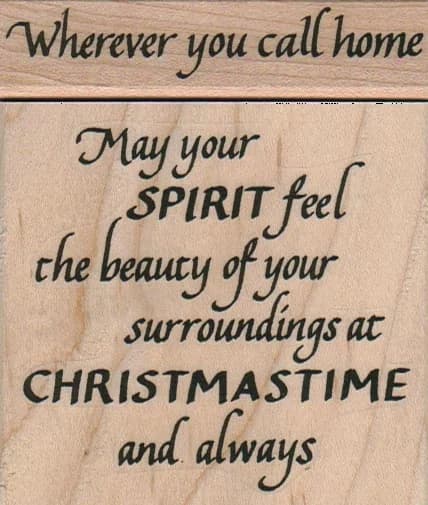 Wherever you call home
May your
SPIRIT feel
the beauty of your
surroundings at
CHRISTMASTIME
and always